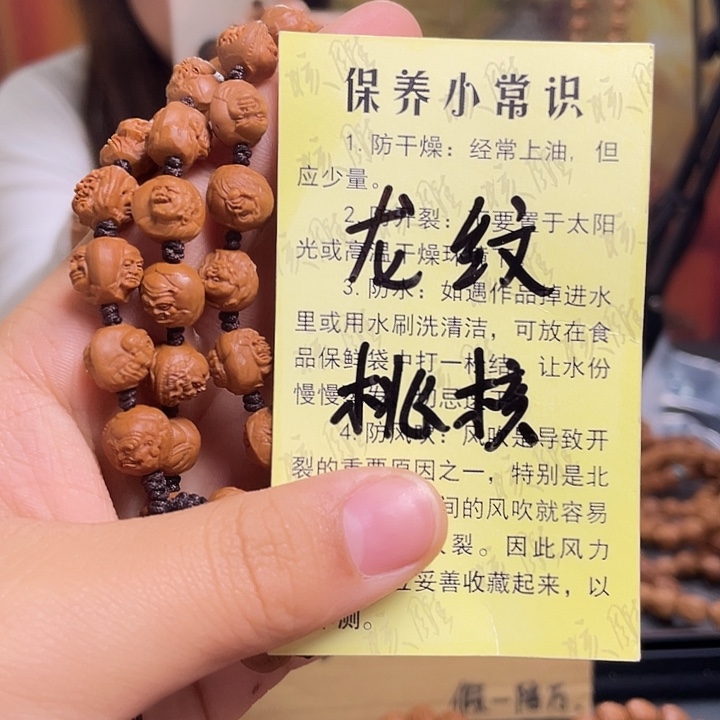 保养小常识
1. 防干燥：经常上油，但
应少量。
2. 防开裂：要置于太阳
光或高温干燥环
3. 防水：如遇作品掉进水
里或用水刷洗清洁，可放在食
品保鲜袋中打一 结 让水份
慢慢
4. 防风吹：风吹是导致开
裂的重要原因之一，特别是北
间的风吹就容易
裂。因此风力
妥善收藏起来，以
测。
龙纹
桃核
假一赔万.